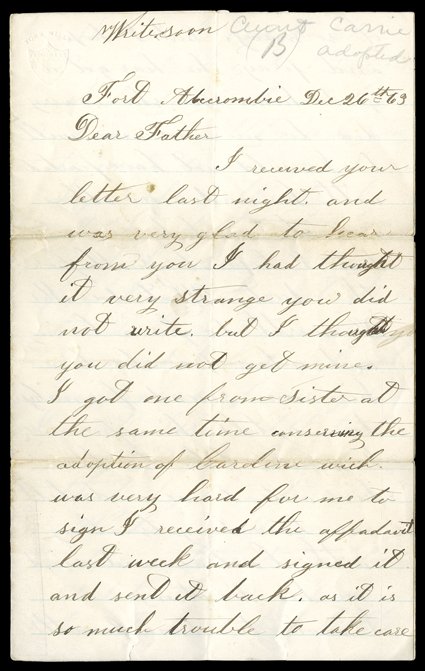 Write soon Aunt Carrie
(B) adopted
Fort Abercrombie Dec 26th 63
Dear Father
I received your
letter last night. and
was very glad to hear
from you I had thought
it very strange you did
not write. but I thought
you did not get mine.
I got one from Sister at
the same time conserning the
adoption of wich.
was very hard for me to
sign I received the affadavit
last week and signed it
and sent it back. as it is
so much trouble to take care